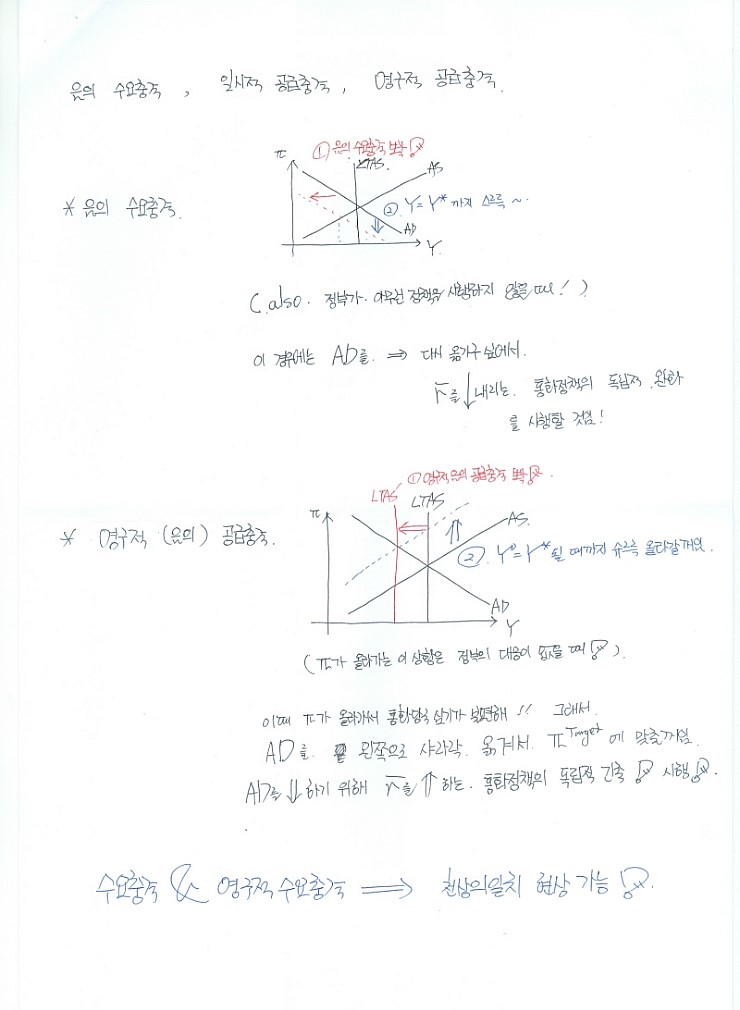 음의 수요충격, 일시적 공급충격, 영구적 공급충격.
* 음의 수요충격.
① 음의 수요충격 뽀삭
π LTAS. AS
② Y=Y* 까지 스르륵~
AD
Y
(also. 정부가 아무런 정책을 시행하지 않을 때!)
이 경우에는 AD를. ⇒ 다시 옮기구 싶어서.
r̄를 ↓ 내리는. 통화정책의 독립적 완화
를 시행할 것임!
* 영구적 (음의) 공급충격.
① 영구적 음의 공급충격 뽀삭
LTAS LTAS
π AS.
② Y=Y* 될 때까지 슈르륵 올라갈꺼임.
AD
Y
(π가 올라가는 이 상황은 정부의 대응이 없을 때).
이때 π가 올라가서 통화당국 심기가 불편해!! 그래서.
AD를. 왼쪽으로 샤라락. 옮겨서. π Target 에 맞출꺼임.
AD를 ⇓ 하기 위해 r̄를 ⇑ 하는. 통화정책의 독립적 긴축 시행.
수요충격 & 영구적 수요충격 ⇒ 천상의일치 현상 가능